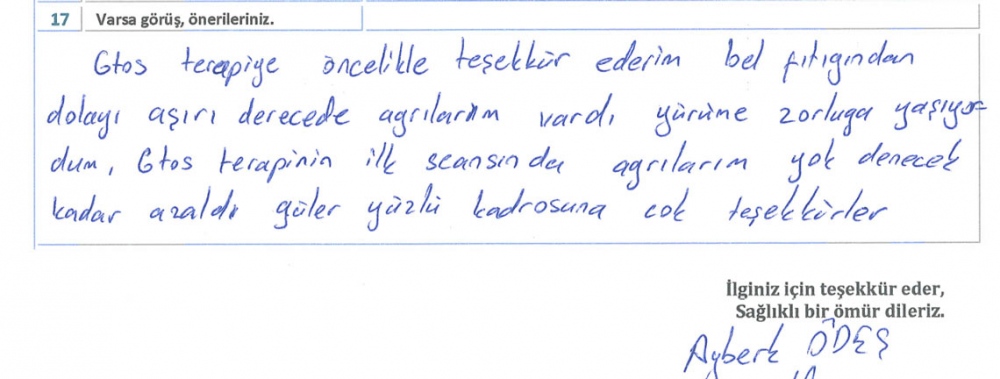 17 Varsa görüş, önerileriniz.
Gtos terapiye öncelikle teşekkür ederim bel fıtıgından
dolayı aşırı derecede agrılarım vardı yürüme zorluga yaşıyor
dum, Gtos terapinin ilk seansında agrılarım yok denecek
kadar azaldı güler yüzlü kadrosuna cok teşekkürler
İlginiz için teşekkür eder,
Sağlıklı bir ömür dileriz.
Ayberk ÖDEŞ